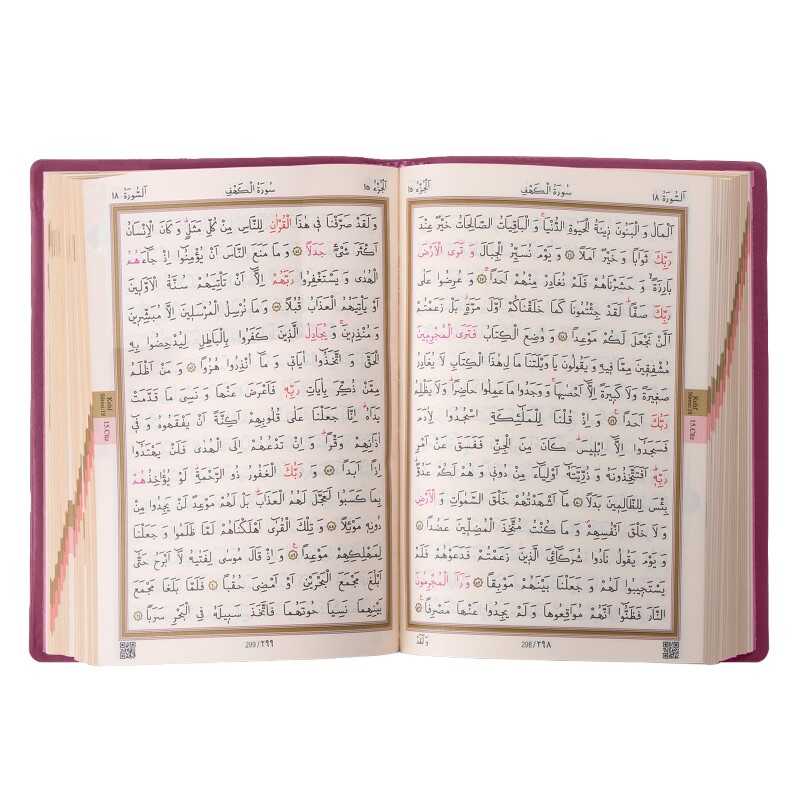 اَلسُّورَةُ ١٨
سُورَةُ الْكَهْفِ
اَلْجُزْءُ ١٥
اَلْمَالُ وَ الْبَنُونَ زِينَةُ الْحَيٰوةِ الدُّنْيَاۚ وَ الْبَاقِيَاتُ الصَّالِحَاتُ خَيْرٌ عِنْدَ
رَبِّكَ ثَوَابًا وَ خَيْرٌ اَمَلًا ﴿٤٦﴾ وَ يَوْمَ نُسَيِّرُ الْجِبَالَ وَ تَرَى الْاَرْضَ
بَارِزَةًۙ وَ حَشَرْنَاهُمْ فَلَمْ نُغَادِرْ مِنْهُمْ اَحَدًاۚ ﴿٤٧﴾ وَ عُرِضُوا عَلٰى
رَبِّكَ صَفًّاۜ لَقَدْ جِئْتُمُونَا كَمَا خَلَقْنَاكُمْ اَوَّلَ مَرَّةٍۘ بَلْ زَعَمْتُمْ
اَلَّنْ نَجْعَلَ لَكُمْ مَوْعِدًا ﴿٤٨﴾ وَ وُضِعَ الْكِتَابُ فَتَرَى الْمُجْرِمِينَ
مُشْفِقِينَ مِمَّا فِيهِ وَ يَقُولُونَ يَا وَيْلَتَنَا مَا لِهٰذَا الْكِتَابِ لَا يُغَادِرُ
صَغِيرَةً وَ لَا كَبِيرَةً اِلَّٓا اَحْصٰيهَاۚ وَ وَجَدُوا مَا عَمِلُوا حَاضِرًاۜ وَ لَا يَظْلِمُ
رَبُّكَ اَحَدًا۟ ﴿٤٩﴾ وَ اِذْ قُلْنَا لِلْمَلٰٓئِكَةِ اسْجُدُوا لِاٰدَمَ
فَسَجَدُٓوا اِلَّٓا اِبْلِيسَۜ كَانَ مِنَ الْجِنِّ فَفَسَقَ عَنْ اَمْرِ
رَبِّهِۜ اَفَتَتَّخِذُونَهُ وَ ذُرِّيَّتَهُٓ اَوْلِيَٓاءَ مِنْ دُونِى وَ هُمْ لَكُمْ عَدُوٌّۜ
بِئْسَ لِلظَّالِمِينَ بَدَلًا ﴿٥٠﴾ مَٓا اَشْهَدْتُهُمْ خَلْقَ السَّمٰوَاتِ وَ الْاَرْضِ
وَ لَا خَلْقَ اَنْفُسِهِمْۖ وَ مَا كُنْتُ مُتَّخِذَ الْمُضِلِّينَ عَضُدًا ﴿٥١﴾
وَ يَوْمَ يَقُولُ نَادُوا شُرَكَٓائِىَ الَّذِينَ زَعَمْتُمْ فَدَعَوْهُمْ فَلَمْ
يَسْتَجِيبُوا لَهُمْ وَ جَعَلْنَا بَيْنَهُمْ مَوْبِقًا ﴿٥٢﴾ وَ رَاَ الْمُجْرِمُونَ
النَّارَ فَظَنُّٓوا اَنَّهُمْ مُوَاقِعُوهَا وَ لَمْ يَجِدُوا عَنْهَا مَصْرِفًا۟ ﴿٥٣﴾
وَ لَقَدْ
298 / ٢٩٨
Kehf
Sûresi:18
15.Cüz
اَلْجُزْءُ ١٥
سُورَةُ الْكَهْفِ
اَلسُّورَةُ ١٨
وَ لَقَدْ صَرَّفْنَا فِى هٰذَا الْقُرْاٰنِ لِلنَّاسِ مِنْ كُلِّ مَثَلٍۜ وَ كَانَ الْاِنْسَانُ
اَكْثَرَ شَىْءٍ جَدَلًا ﴿٥٤﴾ وَ مَا مَنَعَ النَّاسَ اَنْ يُؤْمِنُٓوا اِذْ جَٓاءَهُمُ
الْهُدٰى وَ يَسْتَغْفِرُوا رَبَّهُمْ اِلَّٓا اَنْ تَأْتِيَهُمْ سُنَّةُ الْاَوَّلِينَ
اَوْ يَأْتِيَهُمُ الْعَذَابُ قُبُلًا ﴿٥٥﴾ وَ مَا نُرْسِلُ الْمُرْسَلِينَ اِلَّا مُبَشِّرِينَ
وَ مُنْذِرِينَۚ وَ يُجَادِلُ الَّذِينَ كَفَرُوا بِالْبَاطِلِ لِيُدْحِضُوا بِهِ
الْحَقَّ وَ اتَّخَذُٓوا اٰيَاتِى وَ مَٓا اُنْذِرُوا هُزُوًا ﴿٥٦﴾ وَ مَنْ اَظْلَمُ
مِمَّنْ ذُكِّرَ بِاٰيَاتِ رَبِّهِ فَاَعْرَضَ عَنْهَا وَ نَسِىَ مَا قَدَّمَتْ
يَدَاهُۜ اِنَّا جَعَلْنَا عَلٰى قُلُوبِهِمْ اَكِنَّةً اَنْ يَفْقَهُوهُ وَ فِٓى
اٰذَانِهِمْ وَقْرًاۜ وَ اِنْ تَدْعُهُمْ اِلَى الْهُدٰى فَلَنْ يَهْتَدُٓوا
اِذًا اَبَدًا ﴿٥٧﴾ وَ رَبُّكَ الْغَفُورُ ذُو الرَّحْمَةِۜ لَوْ يُؤَاخِذُهُمْ
بِمَا كَسَبُوا لَعَجَّلَ لَهُمُ الْعَذَابَۜ بَلْ لَهُمْ مَوْعِدٌ لَنْ يَجِدُوا مِنْ
دُونِهِ مَوْئِلًا ﴿٥٨﴾ وَ تِلْكَ الْقُرٰٓى اَهْلَكْنَاهُمْ لَمَّا ظَلَمُوا وَ جَعَلْنَا
لِمَهْلِكِهِمْ مَوْعِدًا۟ ﴿٥٩﴾ وَ اِذْ قَالَ مُوسٰى لِفَتٰيهُ لَٓا اَبْرَحُ حَتّٰٓى
اَبْلُغَ مَجْمَعَ الْبَحْرَيْنِ اَوْ اَمْضِىَ حُقُبًا ﴿٦٠﴾ فَلَمَّا بَلَغَا مَجْمَعَ
بَيْنِهِمَا نَسِيَا حُوتَهُمَا فَاتَّخَذَ سَبِيلَهُ فِى الْبَحْرِ سَرَبًا ﴿٦١﴾
299 / ٢٩٩
Kehf
Sûresi:18
15.Cüz